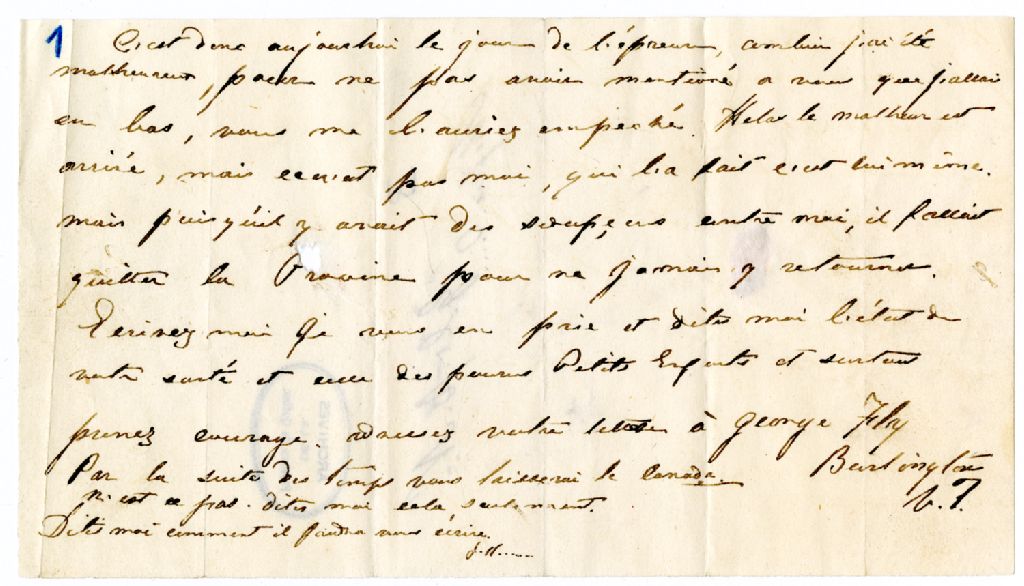 1
C'est donc aujourhui le jour de l'épreuve, combien j'ai été
malheureux, pour ne pas avoir mentioné a vous que j'allais
en bas, vous me l'auriez empeché. Helas le malheur est
arrivé, mais ce n'est pas moi, qui l'a fait c'est lui même.
mais puisqu'il y avait des soupçons contre moi, il fallait
quitter la Province pour ne jamais y retourner.
Ecrivez moi je vous en prie et dites moi l'état de
votre santé et celle des pauvres Petits Enfants et surtout
prenez courage. adressez votre lettre à george Fly
Burlington
V.T.
Par la suite des temps vous laisserai le Canada
N'est ce pas. dites moi cela, seulement.
Dites moi comment il faudra vous écrire.